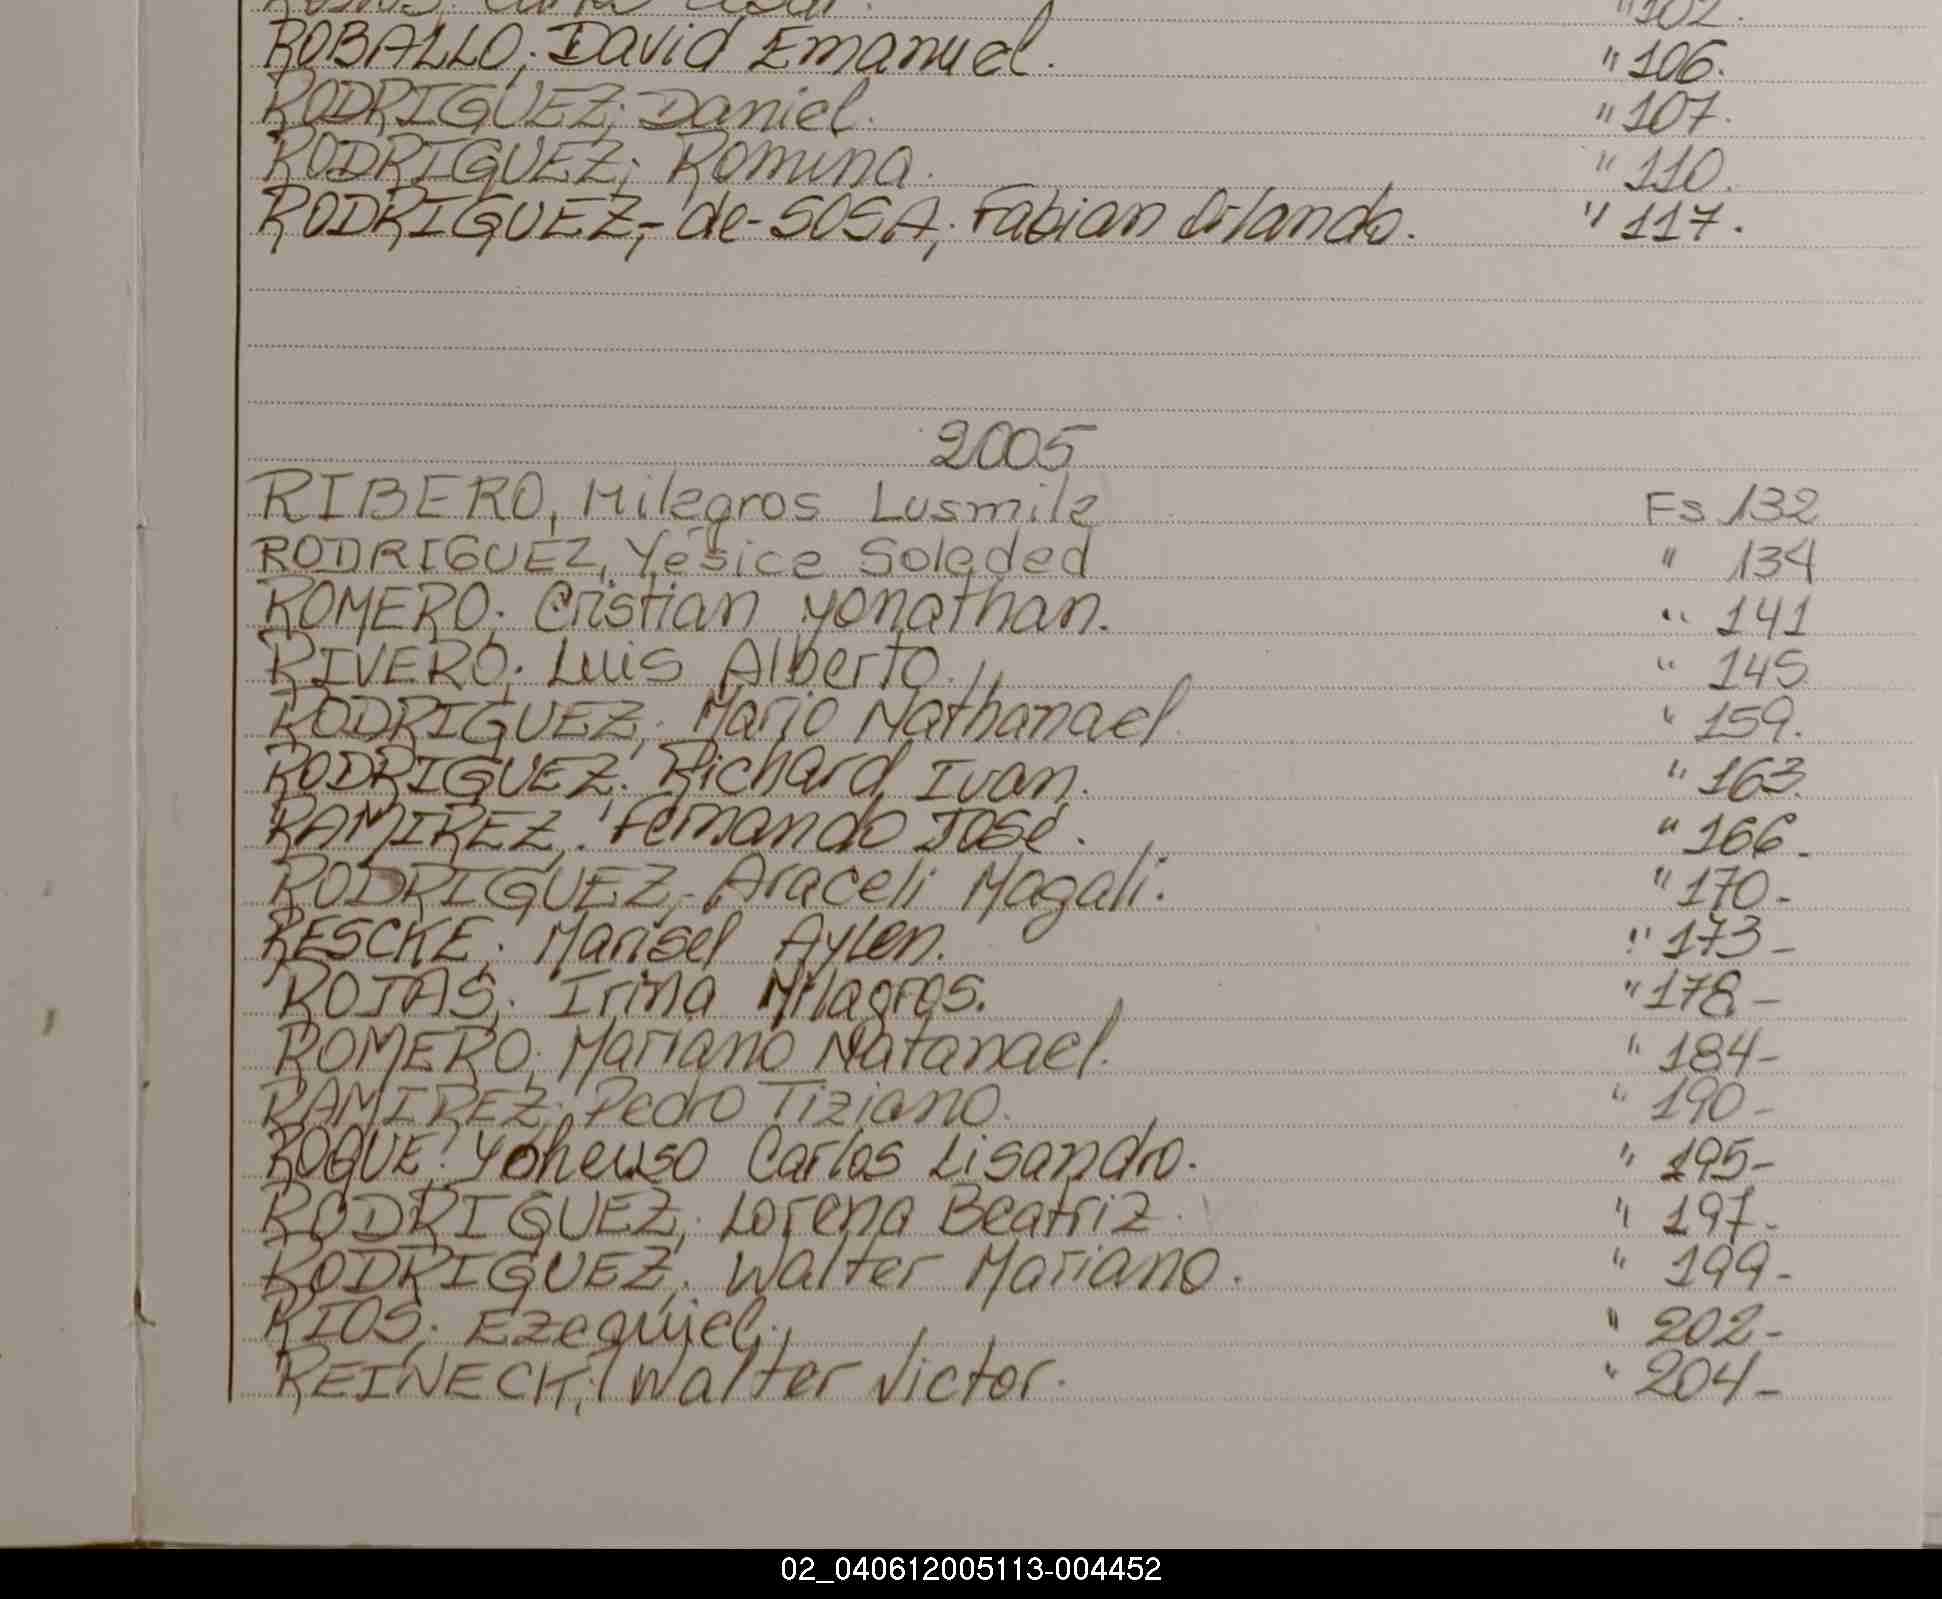 " 102.
ROBALLO; David Emanuel. " 106.
RODRIGUEZ; Daniel. " 107.
RODRIGUEZ; Romina. " 110.
RODRIGUEZ,- de-SOSA; Fabian Orlando. " 117.
2005
RIBERO, Milagros Lusmila Fs 132
RODRIGUEZ, Yésica Soledad " 134
ROMERO; Cristian yonathan. " 141
RIVERO; Luis Alberto. " 145
RODRIGUEZ; Mario Nathanael. " 159.
RODRIGUEZ; Richard Ivan. " 163.
RAMIREZ; Fernando José. " 166-
RODRIGUEZ,- Araceli Magali. " 170-
RESCKE; Marisel Aylen. " 173-
ROJAS; Irina Milagros. " 178-
ROMERO; Mariano Natanael. " 184-
RAMIREZ; Pedro Tiziano. " 190-
ROQUE; Carlos Lisandro. " 195-
RODRIGUEZ; Lorena Beatriz. " 197-
RODRIGUEZ; Walter Mariano. " 199-
RIOS; Ezequiel. " 202-
REINECK; Walter Victor. " 204-
02_040612005113-004452